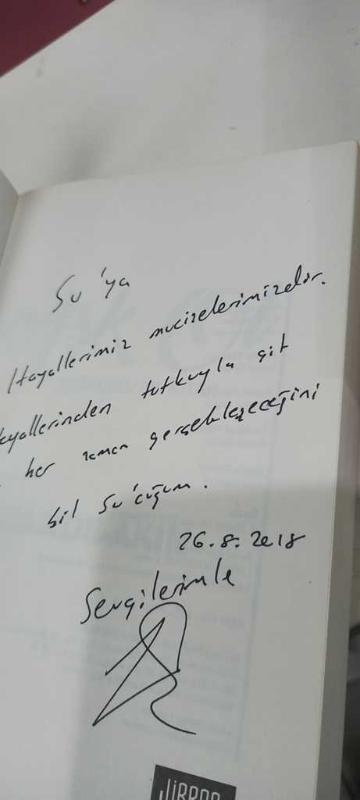 Su'ya
Hayallerimiz mucizelerimizdir.
Hayallerinden tutkuyla git
her zaman gerçekleşeceğini
bil Su'cuğum.
26.8.2018
Sevgilerimle